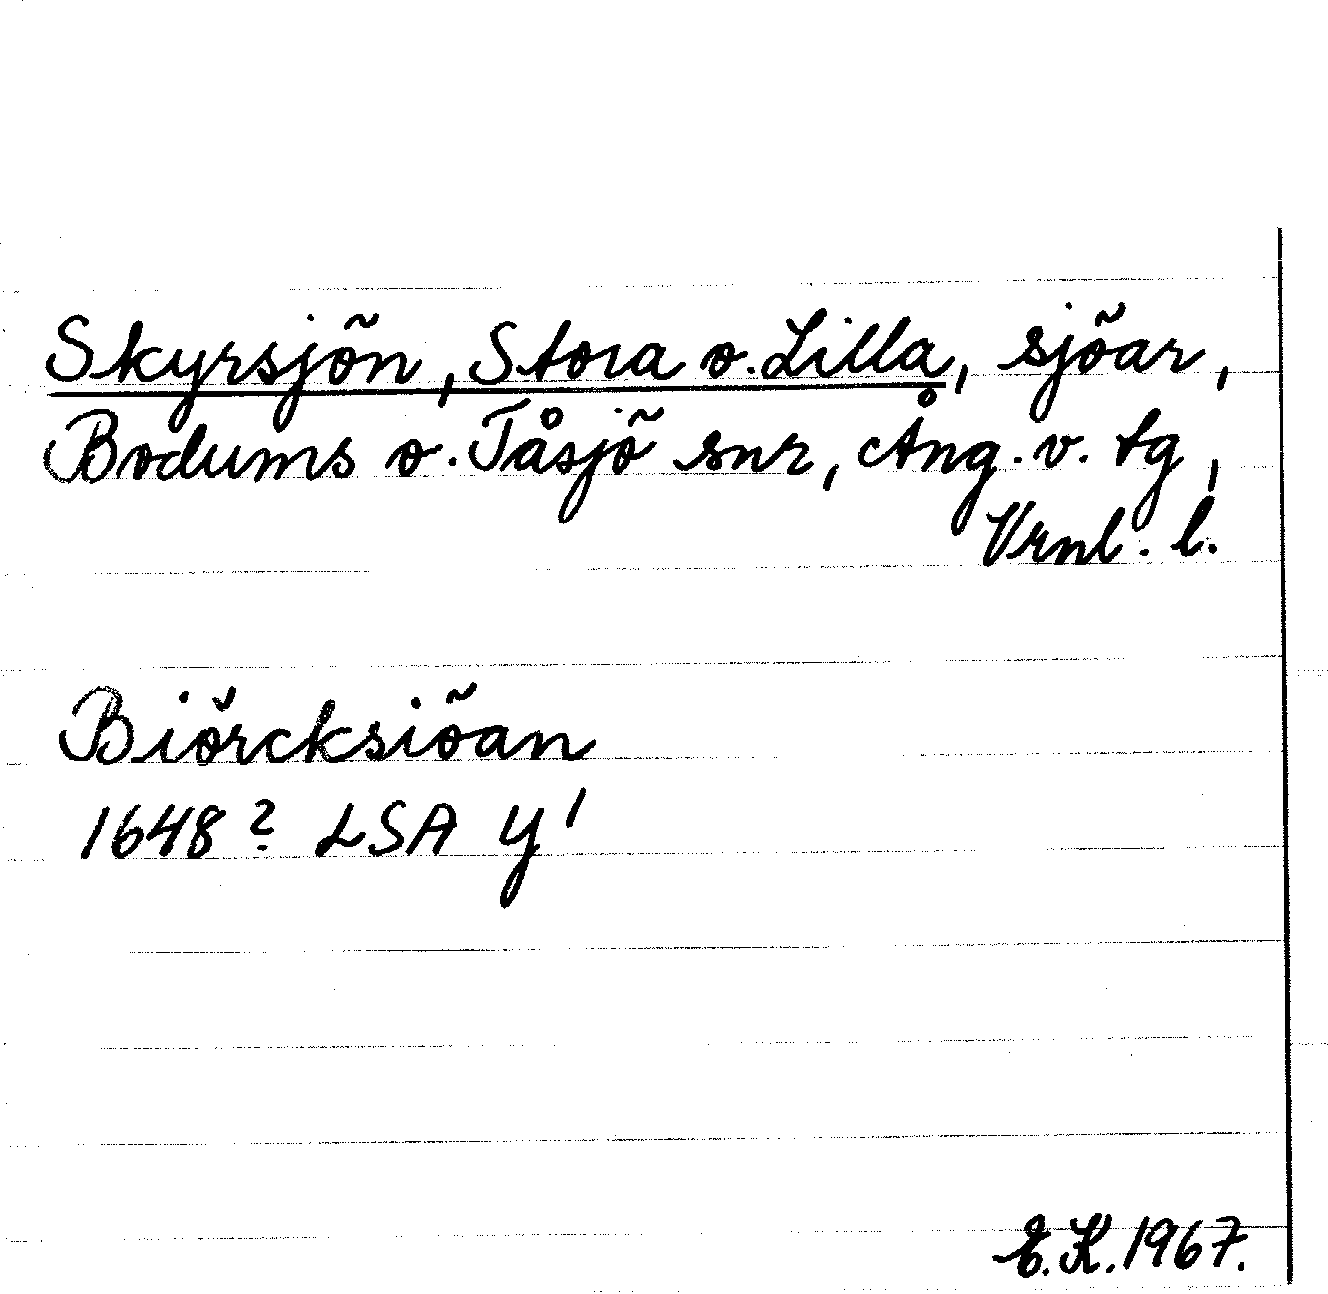 Skyrsjön, Stora o. Lilla, sjöar,
Bodums o. Tåsjö snr, Ång. v. tg,
Vrnl. l.
Biörcksiöan
1648? LSA Y'
E.K. 1967.